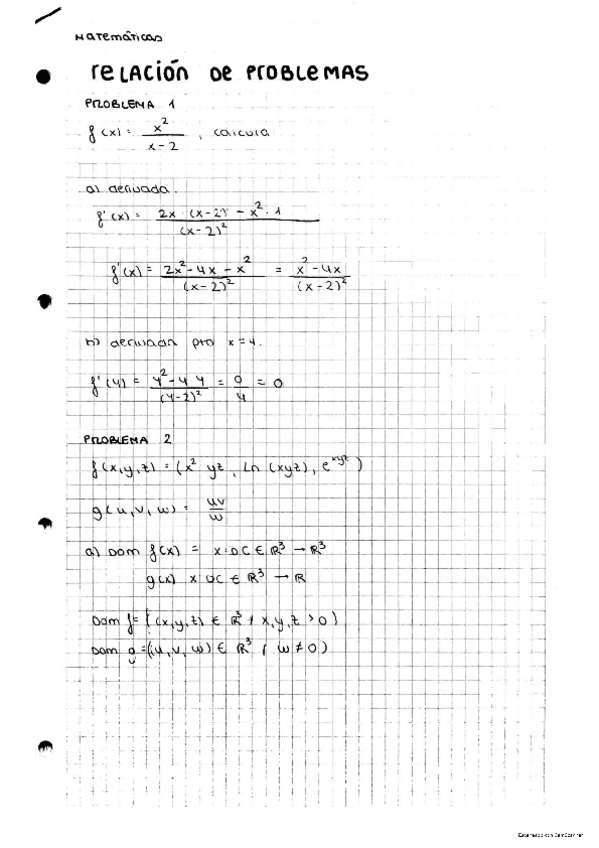 Matemáticas
reLACIÓN DE PROBLEMAS
PROBLEMA 1
f(x) = x²/(x-2), calcula
a) derivada.
f'(x) = (2x · (x-2) - x² · 1)/(x-2)²
f'(x) = (2x² - 4x - x²)/(x-2)² = (x² - 4x)/(x-2)²
b) derivada pto x = 4.
f'(4) = (4² - 4 · 4)/(4-2)² = 0/4 = 0
PROBLEMA 2
f(x,y,z) = (x² yz, Ln (xyz), e^xyz)
g(u,v,w) = uv/w
a) Dom f(x) = x: DC ∈ ℝ³ → ℝ³
g(x) x: DC ∈ ℝ³ → ℝ
Dom f = {(x,y,z) ∈ ℝ³ / x,y,z > 0)
Dom g = {(u,v,w) ∈ ℝ³ / w ≠ 0)
Escaneado con CamScanner